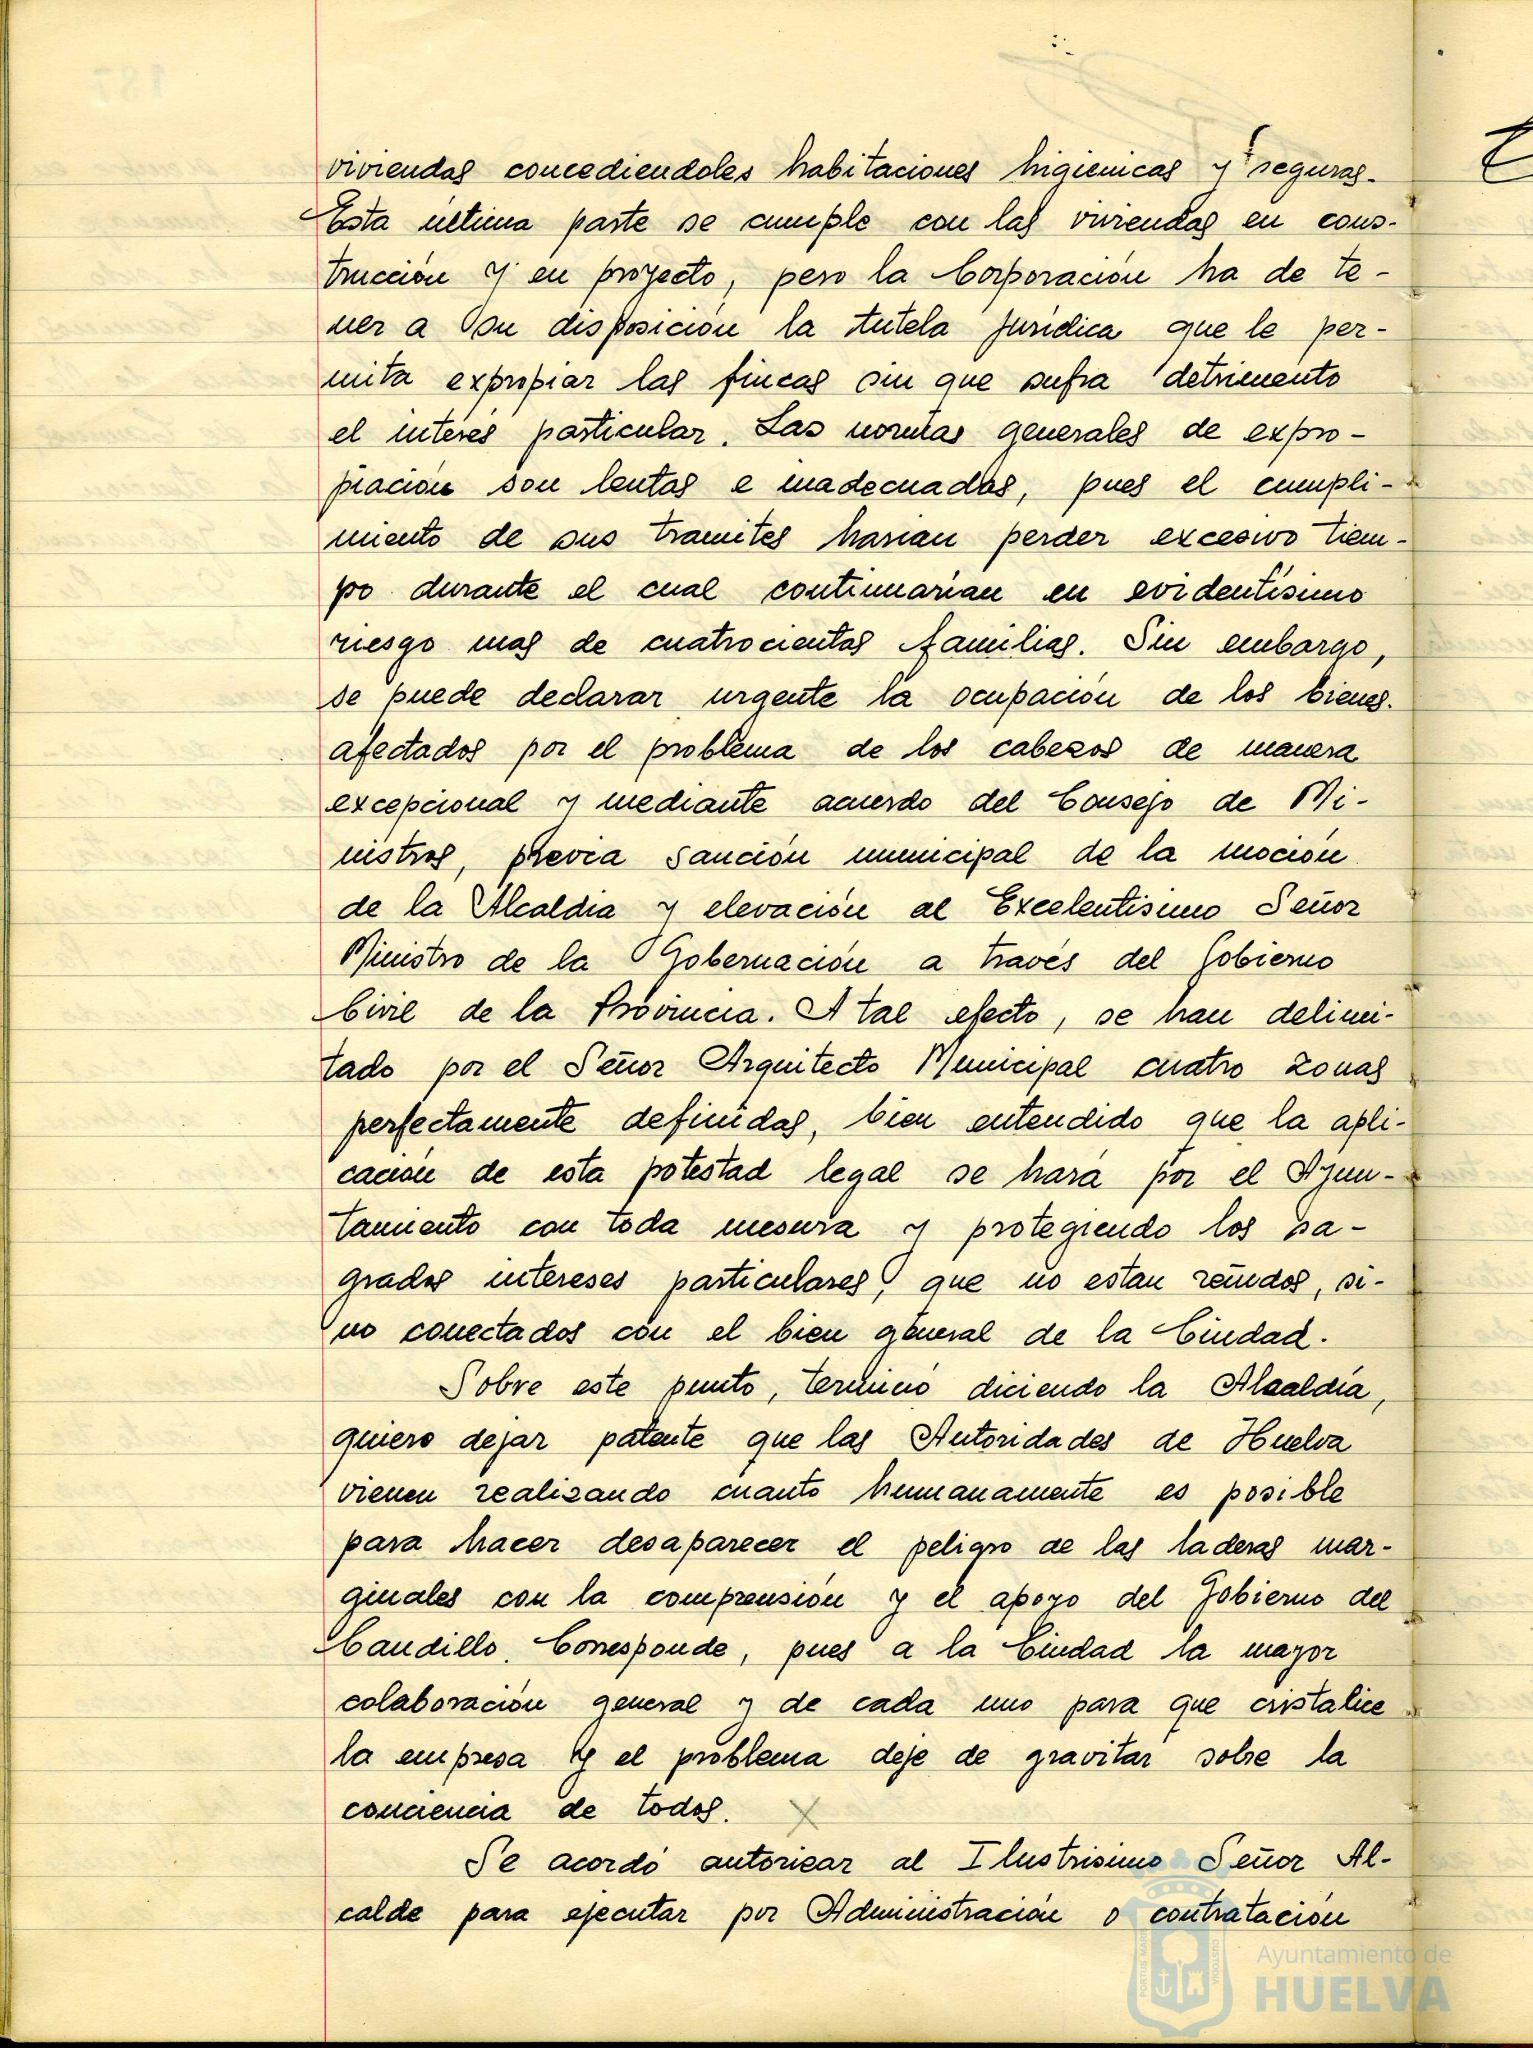 viviendas concediendoles habitaciones higienicas y seguras.
Esta última parte se cumple con las viviendas en cons-
trucción y en proyecto, pero la Corporación ha de te-
ner a su disposición la tutela jurídica que le per-
mita expropiar las fincas sin que sufra detrimento
el interés particular. Las normas generales de expro-
piación son lentas e inadecuadas, pues el cumpli-
miento de sus tramites harian perder excesivo tiem-
po durante el cual continuarían en evidentísimo
riesgo mas de cuatrocientas familias. Sin embargo,
se puede declarar urgente la ocupación de los bienes
afectados por el problema de los cabezos de manera
excepcional y mediante acuerdo del Consejo de Mi-
nistros, previa sanción municipal de la moción
de la Alcaldia y elevación al Excelentisimo Señor
Ministro de la Gobernación a través del Gobierno
Civil de la Provincia. A tal efecto, se han delimi-
tado por el Señor Arquitecto Municipal cuatro zonas
perfectamente definidas, bien entendido que la apli-
cación de esta potestad legal se hará por el Ayun-
tamiento con toda mesura y protegiendo los sa-
grados intereses particulares, que no estan reñidos, si-
no conectados con el bien general de la Ciudad.
Sobre este punto, terminó diciendo la Alcaldía,
quiero dejar patente que las Autoridades de Huelva
vienen realizando cuanto humanamente es posible
para hacer desaparecer el peligro de las laderas mar-
ginales con la comprensión y el apoyo del Gobierno del
Caudillo. Corresponde, pues a la Ciudad la mayor
colaboración general y de cada uno para que cristalice
la empresa y el problema deje de gravitar sobre la
conciencia de todos.
Se acordó autorizar al Ilustrisimo Señor Al-
calde para ejecutar por Administración o contratación
Ayuntamiento de
HUELVA